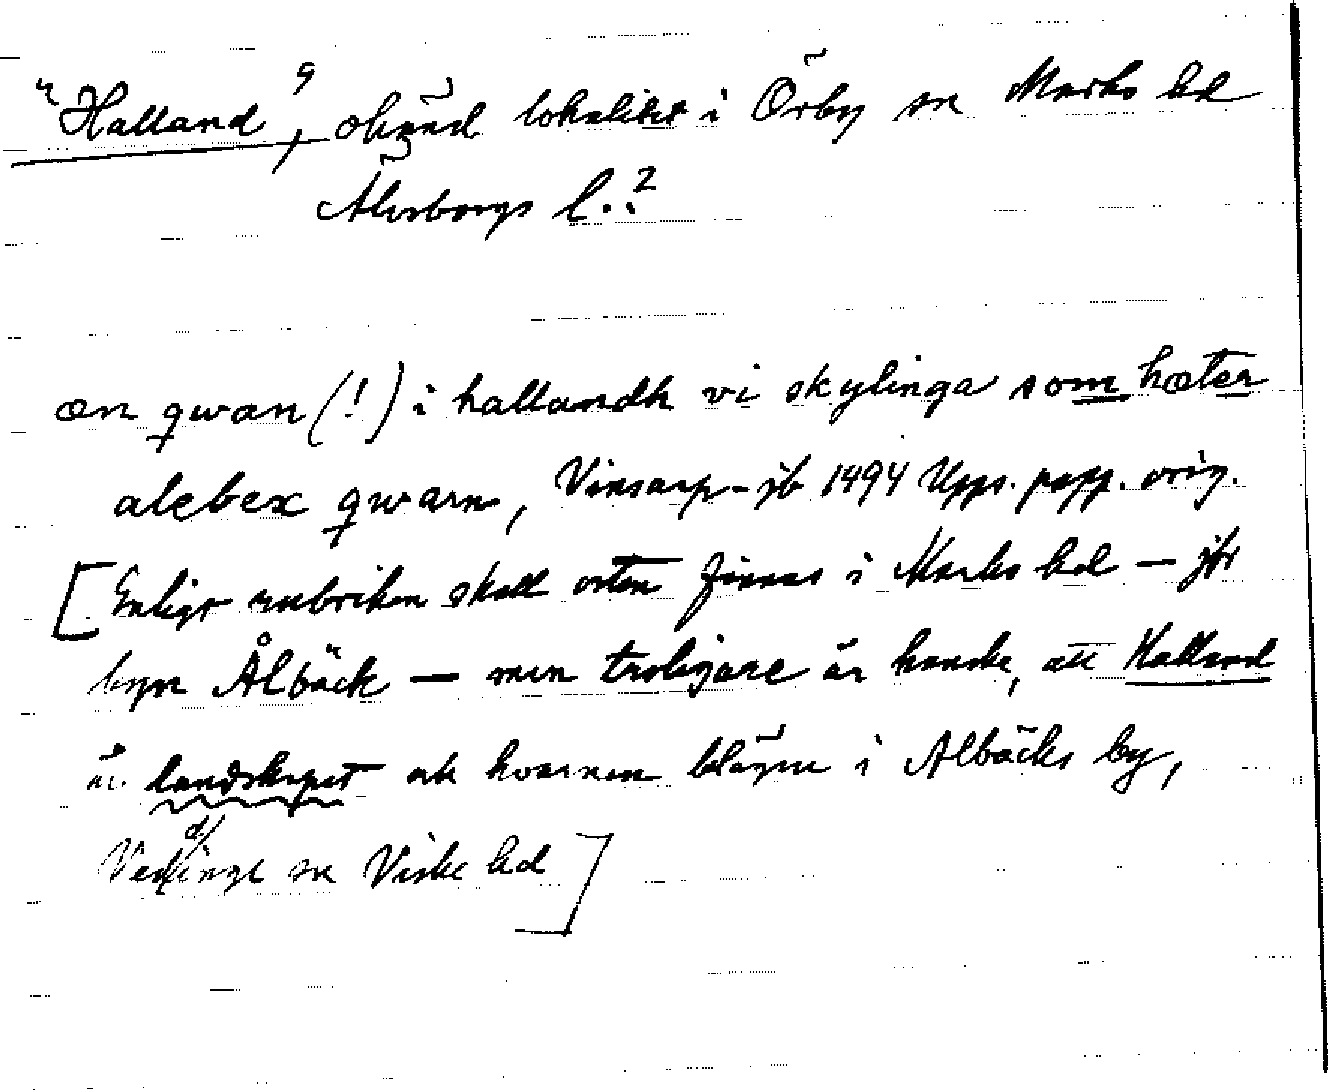 "Halland", okänd lokalitet i Örby sn Marks hd
Älvsborgs l.?
æn qwæn (!) i hallandh vi skylinga som hæter
alebex qwarn, Vinsarp-jb 1494 Upps. papp. orig.
[Enligt rubriken skall orten finnas i Marks hd – jfr
byn Ålbäck – men troligare är kanske, att Halland
är landskapet och kvarnen belägen i Albäcks by,
Veddinge sn Viske hd]